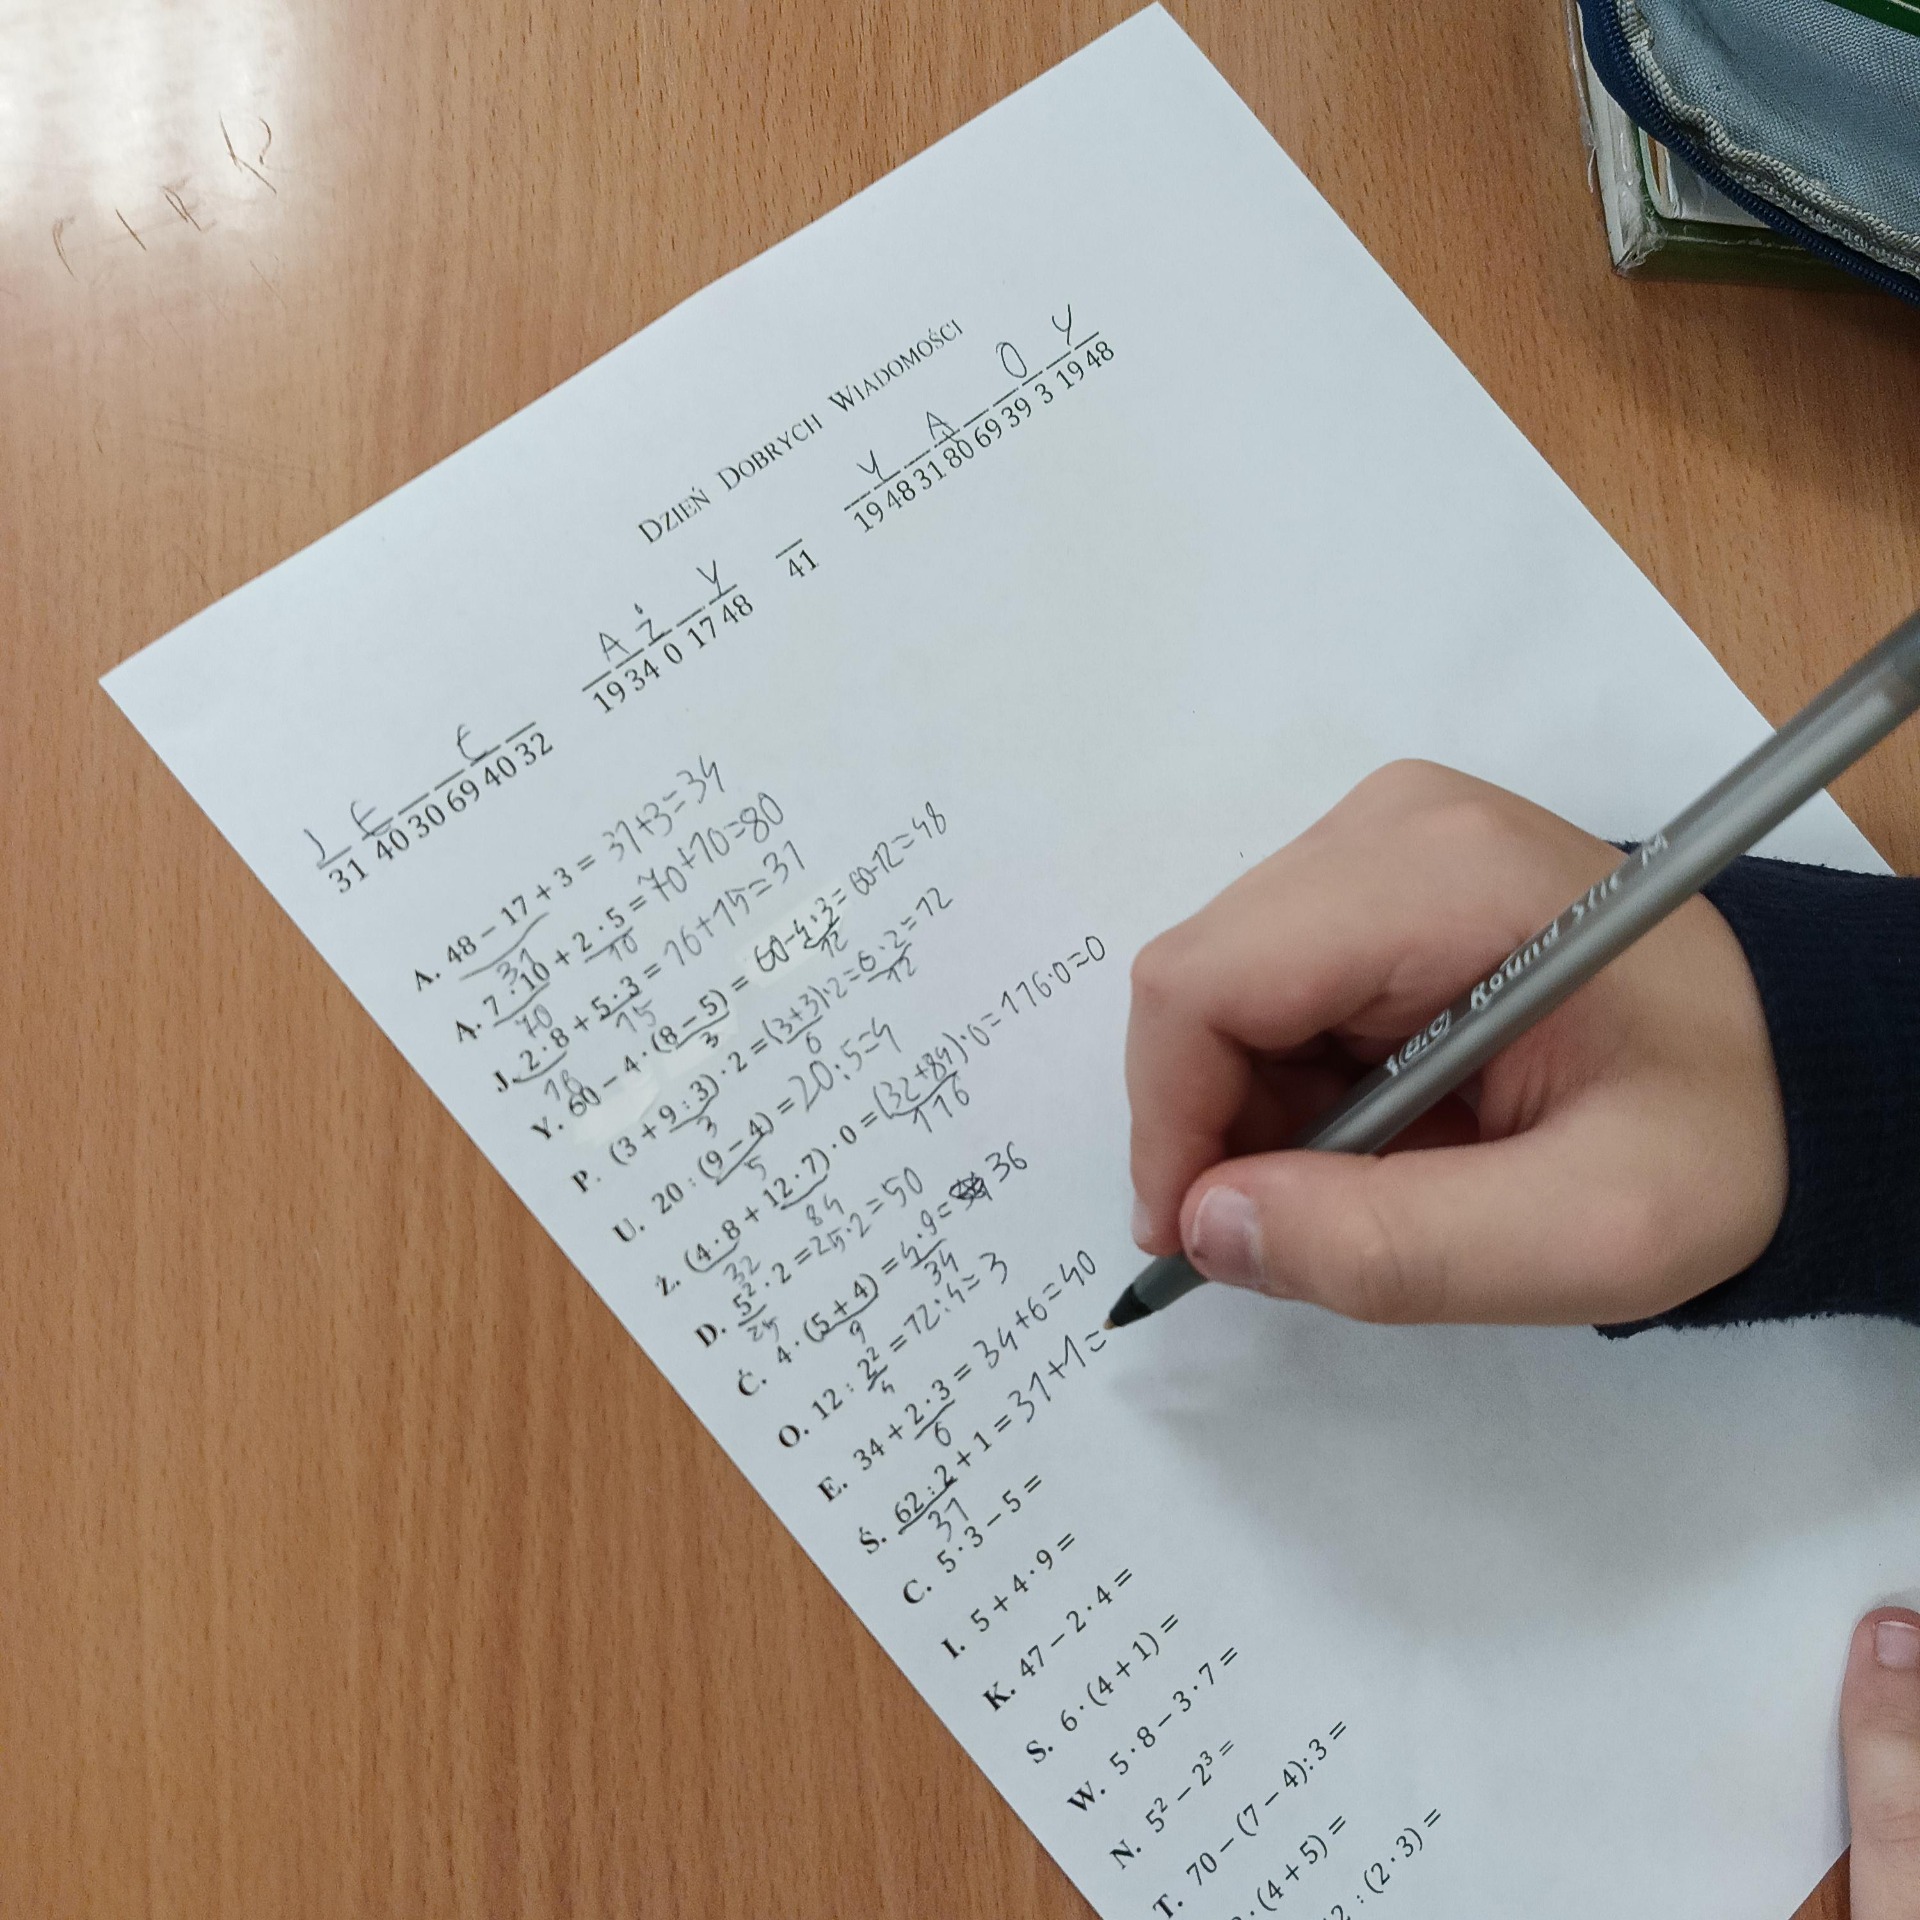 DZIEŃ DOBRYCH WIADOMOŚCI
J E E
31 40 30 69 40 32
A Ż Y
19 34 0 17 48
41
Y A O Y
19 48 31 80 69 39 3 19 48
A. 48 – 17 + 3 = 31+3=34
31
A. 7 · 10 + 2 · 5 = 70+10=80
70 10
J. 2 · 8 + 5 · 3 = 16+15=31
16 15
Y. 60 – 4 · (8 – 5) = 60-4·3=60-12=48
3 12
P. (3 + 9 : 3) · 2 = (3+3)·2=6·2=12
3 6 12
U. 20 : (9 – 4) = 20:5=4
5
Ż. (4 · 8 + 12 · 7) · 0 = (32+84)·0=116·0=0
32 84 116
D. 5² · 2 = 25·2=50
25
Ć. 4 · (5 + 4) = 4·9= 36
9 34
O. 12 : 2² = 12:4=3
4
E. 34 + 2 · 3 = 34+6=40
6
Ś. 62 : 2 + 1 = 31+1=
31
C. 5 · 3 – 5 =
I. 5 + 4 · 9 =
K. 47 – 2 · 4 =
S. 6 · (4 + 1) =
W. 5 · 8 – 3 · 7 =
N. 5² – 2³ =
T. 70 – (7 – 4) : 3 =
· (4 + 5) =
2 : (2 · 3) =
BIC Round Stic M